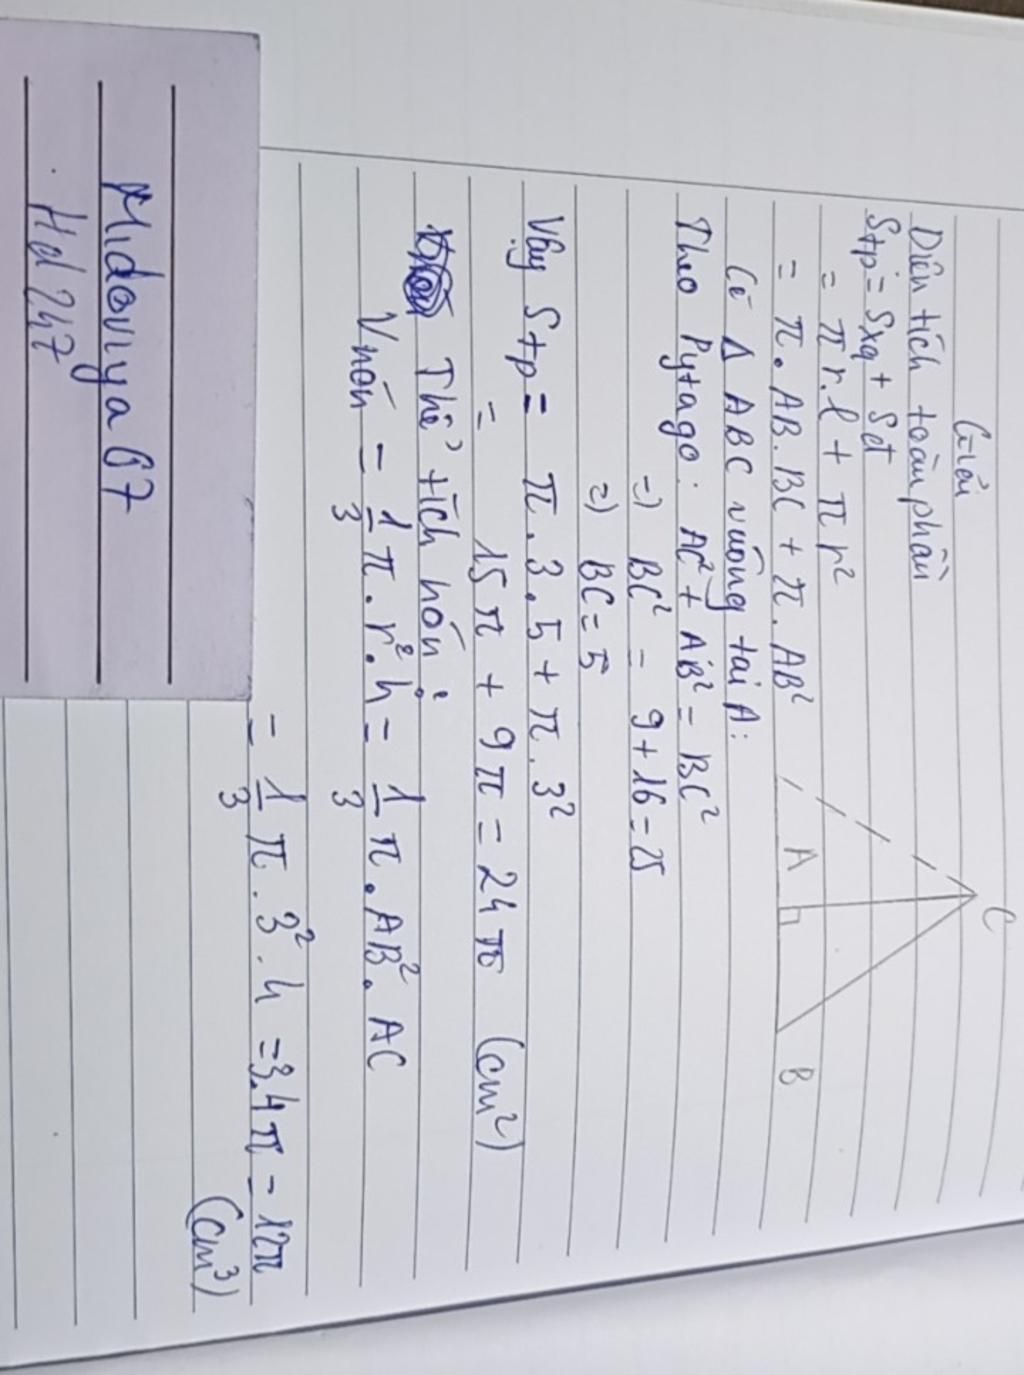 Giải
Diện tích toàn phần
Stp = Sxq + Sđ
= π r.l + π r²
= π.AB.BC + π.AB²
C
A
B
Có Δ ABC vuông tại A:
Theo Pytago: AC² + AB² = BC²
=) BC² = 9+16=25
=) BC = 5
Vậy Stp = π.3.5 + π.3²
= 15π + 9π = 24π (cm²)
Thể tích nón:
Vnón = 1/3 π.r².h = 1/3 π.AB².AC
= 1/3 π.3².4 = 3.4π = 12π
(cm³)
Midoviya67
Hd247